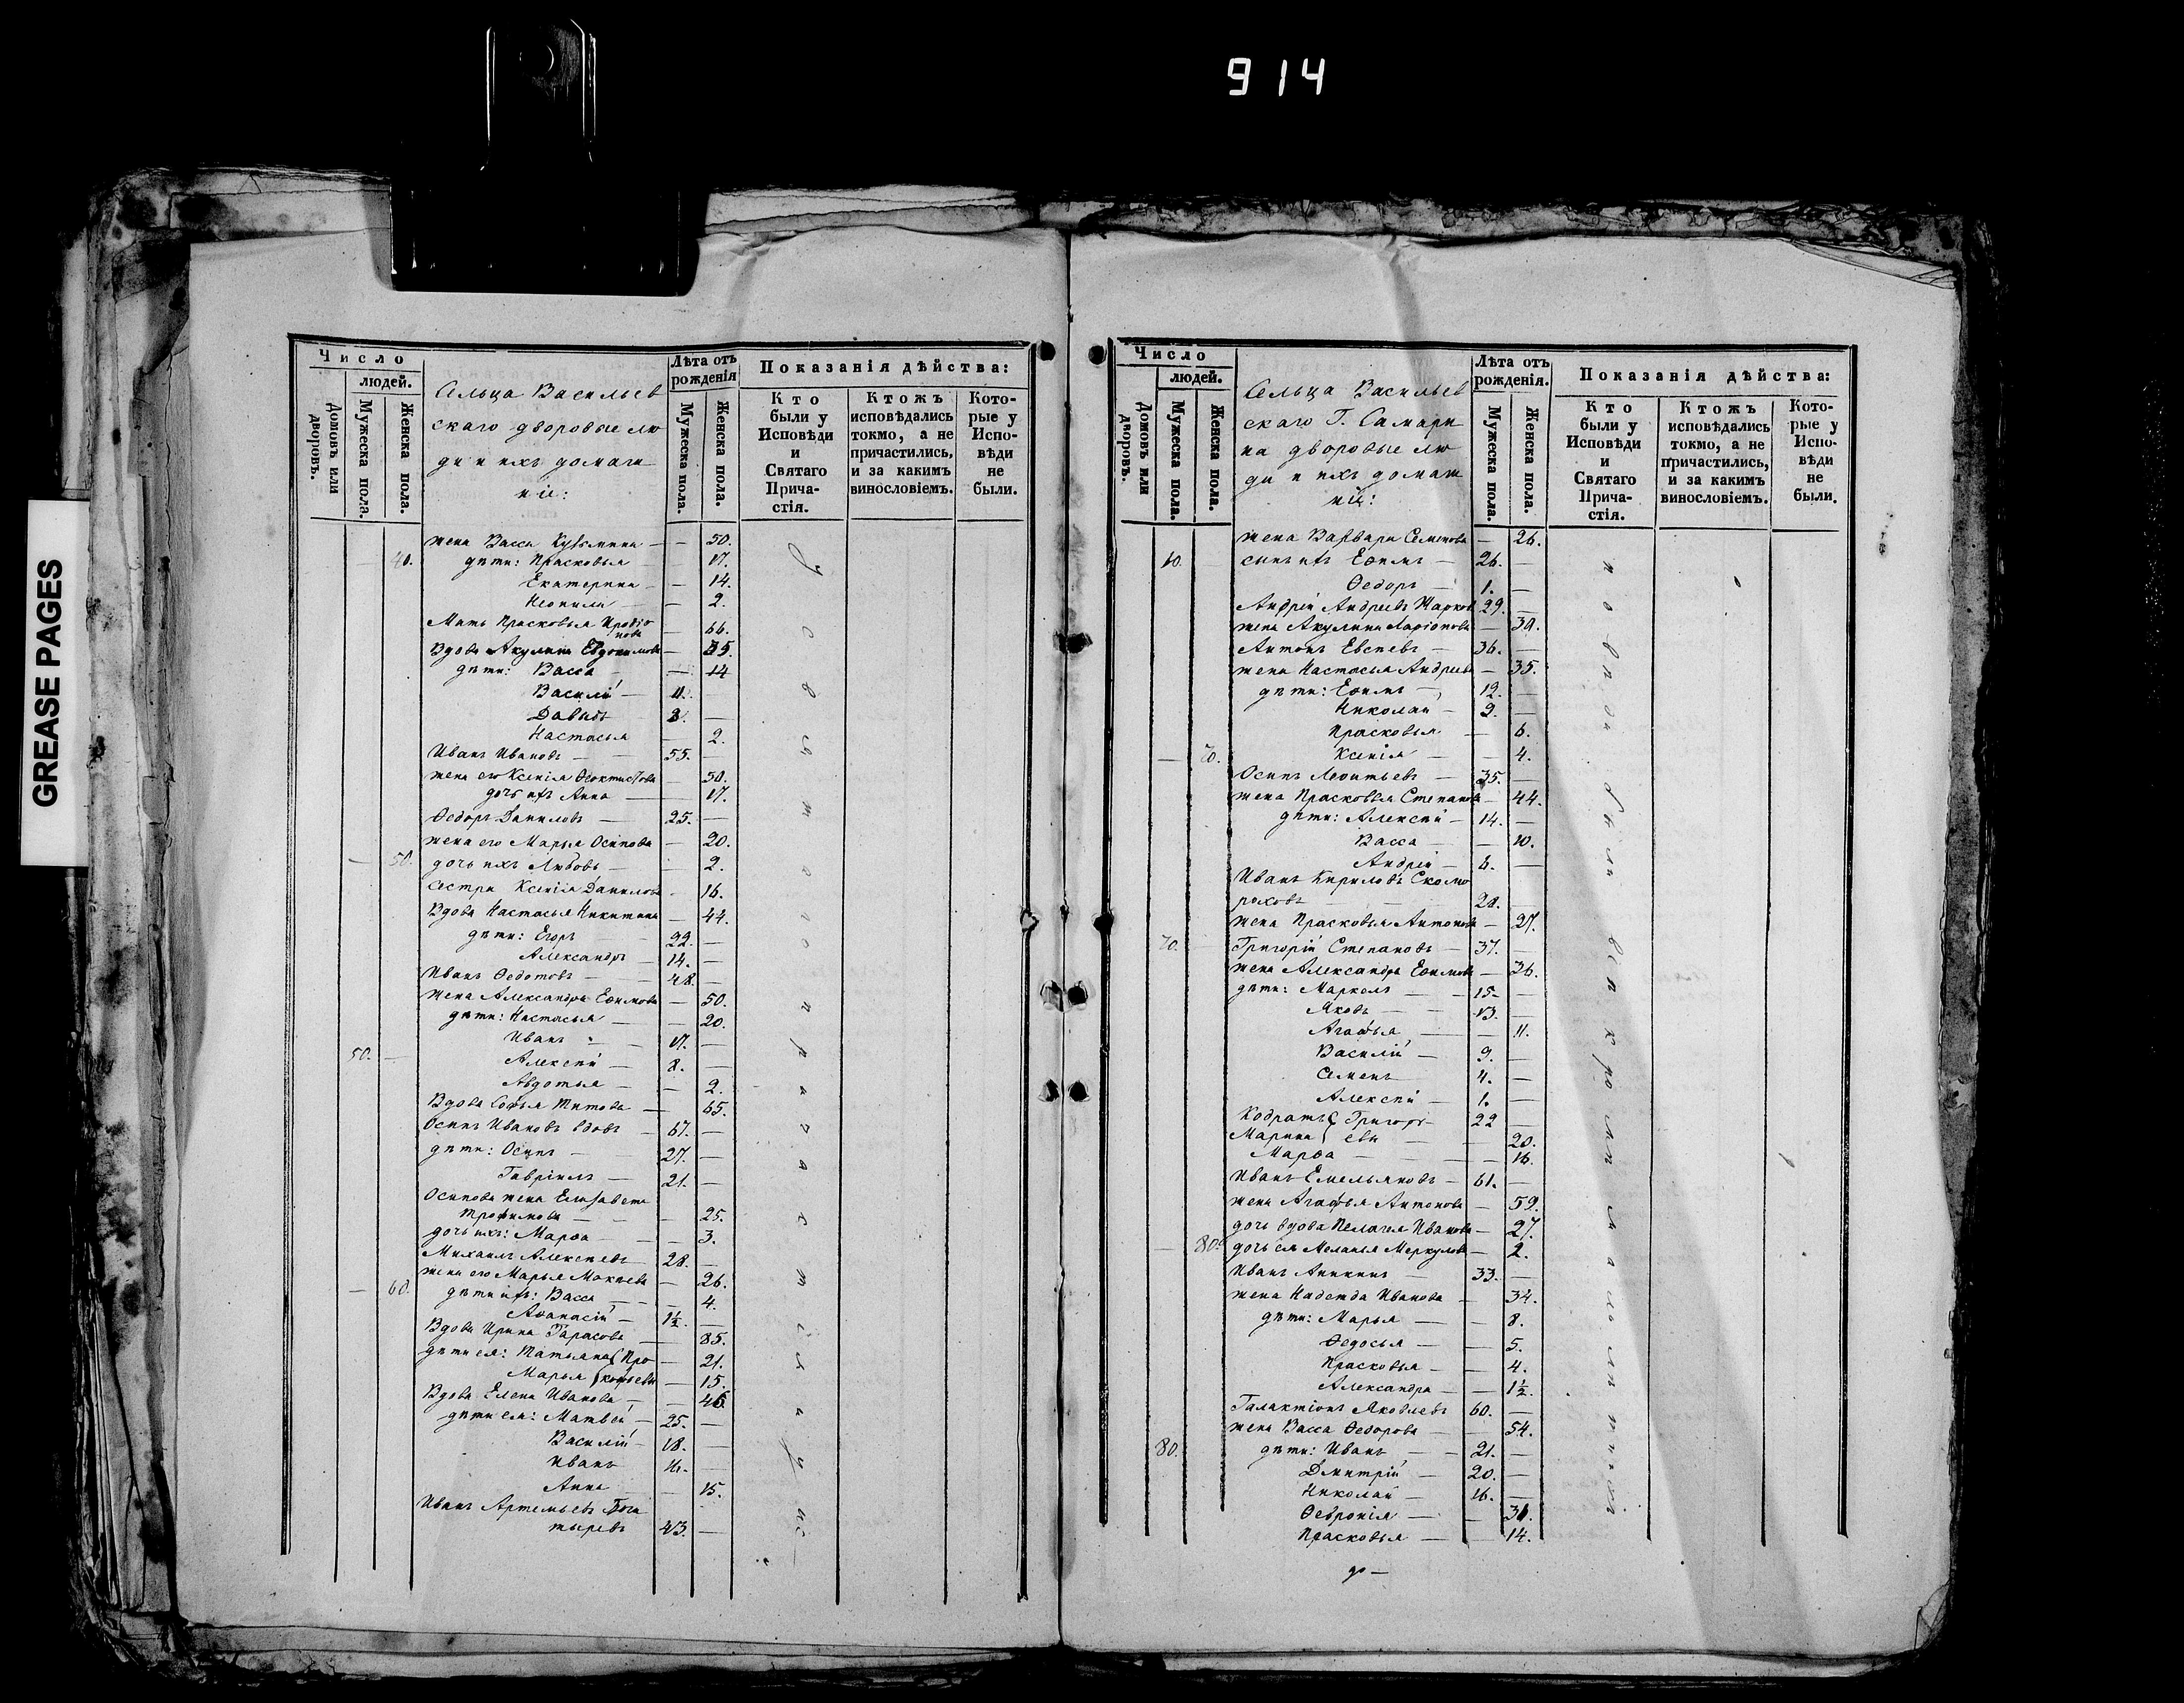 914
GREASE PAGES
Число
людей.
Домовъ или дворовъ.
Мужеска пола.
Женска пола.
Сельца Васильев
скаго дворовые лю
ди и ихъ домаш
ніе:
Лѣта отъ рожденія
Мужеска пола.
Женска пола.
Показанія дѣйства:
Кто были у Исповѣди и Святаго Прича- стія.
Ктожъ исповѣдались токмо, а не причастились, и за какимъ винословіемъ.
Кото- рые у Испо- вѣди не были.
жена Васса Кузьмина — — 50.
40. дѣти: Прасковья — — 17.
Екатерина — — 14.
Неонила — — 2.
Мать Прасковья Иродіо
нова — 66.
Вдова Акулина Евдокимова — 35.
дѣти: Васса — — 14
Василій — 11. —
Давыдъ 8. —
Настасья — 2.
Иванъ Ивановъ — 55. —
жена его Ксенія Ѳеоктистова — 50.
дочь ихъ Анна — — 17.
Ѳедоръ Даниловъ — 25. —
жена его Марья Осипова — 20.
— 50. дочь ихъ Любовь — — 2.
сестра Ксенія Данилова — 16.
Вдова Настасья Никитина — 44.
дѣти: Егоръ — 22. —
Александръ — 14. —
Иванъ Ѳедотовъ — 48. —
жена Александра Ефимова — 50.
дѣти: Настасья — — 20.
Иванъ — 17. —
50. — Алексѣй — 8. —
Авдотья — — 2.
Вдова Софья Титова — 65.
Осипъ Ивановъ вдовъ — 67. —
дѣти: Осипъ — 27. —
Гавріилъ — 21. —
Осипова жена Елизавета
Трофимова — — 25.
дочь ихъ: Марѳа — — 3.
Михаилъ Алексѣевъ — 28. —
жена его Марья Мокѣева — 26.
— 60. дѣти ихъ: Васса — — 4.
Аѳанасій — 1½. —
Вдова Ирина Тарасова — 85.
дѣти ея: Татьяна { Про — 21.
Марья { кофьевы — 15.
Вдова Елена Иванова — — 46
дѣти ея: Матвѣй — 25. —
Василій — 18. —
Иванъ 16. —
Анна — — 15.
Иванъ Артемьевъ Бога
тыревъ 43. —
у с в я т о г о п р и ч а с т і я
Число
людей.
Домовъ или дворовъ.
Мужеска пола.
Женска пола.
Сельца Васильев
скаго Г. Самари
на дворовые лю
ди и ихъ домаш
ніе:
Лѣта отъ рожденія.
Мужеска пола.
Женска пола.
Показанія дѣйства:
Кто были у Исповѣди и Святаго Прича- стія.
Ктожъ исповѣдались токмо, а не причастились, и за какимъ винословіемъ.
Кото- рые у Испо- вѣди не были.
жена Варвара Семенова — 26.
60. сынъ ихъ Ефимъ — 26. —
Ѳедоръ — 1. —
Андрей Андреевъ Жарковъ 29. —
жена Акулина Ларіонова — 30.
Антонъ Евсѣевъ — 36. —
жена Настасья Андреева — 35.
дѣти: Ефимъ — 12. —
Николай — 9. —
Прасковья — 6.
— 70. Ксенія — — 4.
Осипъ Леонтьевъ — 35. —
жена Прасковья Степанова — 44.
дѣти: Алексѣй — 14. —
Васса — — 10.
Андрей — 6. —
Иванъ Кириловъ Скомо
роховъ 28. —
жена Прасковья Антонова — 27.
70. Григорій Степановъ — 37. —
жена Александра Ефимова — 36.
дѣти: Маркелъ — 15. —
Яковъ — 13. —
Агафья — — 11.
Василій — 9. —
Семенъ 4. —
Алексѣй — 1. —
Кодратъ { Григорь 22 —
Марина { евы — — 20.
Марѳа — — 16.
Иванъ Емельяновъ — 61. —
жена Агафья Антонова — 59.
дочь вдова Пелагея Иванова — 27.
— 80. дочь ея Меланья Меркулова — 2.
Иванъ Аникинъ — 33. —
жена Надежда Иванова — 34.
дѣти: Марья — — 8.
Ѳедосья — — 5.
Прасковья — — 4.
Александра — — 1½.
Галактіонъ Яковлевъ 60. —
жена Васса Ѳедорова — 54.
80. дѣти: Иванъ — 21. —
Дмитрій — 20. —
Николай — 16. —
Ѳевронія — — 30.
Прасковья — — 14.